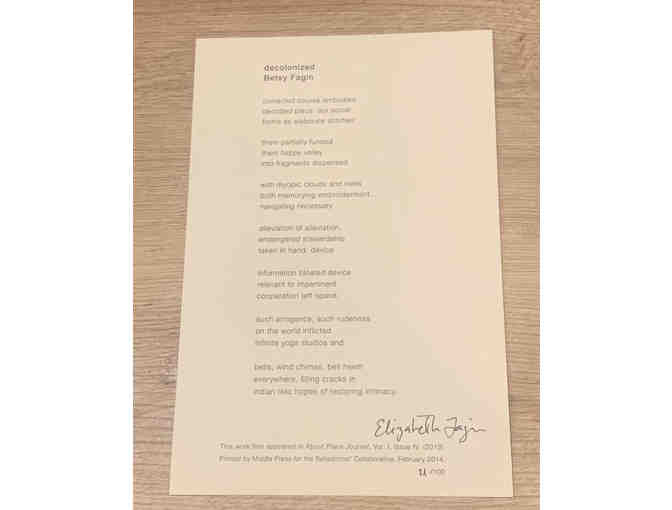 decolonized
Betsy Fagin
corrected course embodied
decoded place. our social
forms as elaborate
them partially funded
them happy valley
into fragments dispersed
with myopic clouds and
both memorying
navigating necessary
alleviation of alleviation,
endangered stewardship
taken in hand. device
information blinded device
relevant to impairment
cooperation left opaod.
such arrogance, such rudeness
on the world inflicted
infinite yoga studios and
bells, wind chimes, bell heath
everywhere, filling cracks in
indian like hopes of restoring intimacy.
Elizabeth Fagin
This work first appeared in About Place Journal, Vol. 1, Issue IV. (2013).
Printed by Middle Press for the Belladonna* Collaborative, February 2014.
/100